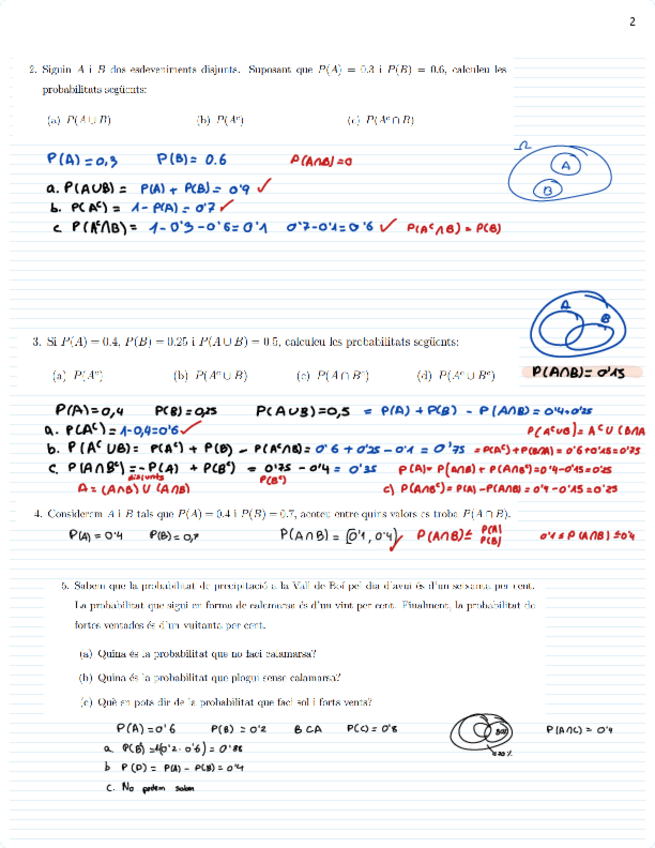 2
2. Siguin A i B dos esdeveniments disjunts. Suposant que P(A) = 0.3 i P(B) = 0.6, calculeu les
probabilitats següents:
(a) P(A ∪ B) (b) P(Aᶜ) (c) P(Aᶜ ∩ B)
P(A) = 0,3 P(B) = 0.6 P(A∩B) = 0
Ω
A
B
a. P(A∪B) = P(A) + P(B) = 0'9 ✓
b. P(Aᶜ) = 1 - P(A) = 0'7 ✓
c P(Aᶜ∩B) = 1-0'3-0'6 = 0'1 0'7-0'1 = 0'6 ✓ P(Aᶜ∩B) = P(B)
A
B
3. Si P(A) = 0.4, P(B) = 0.25 i P(A ∪ B) = 0.5, calculeu les probabilitats següents:
(a) P(Aᶜ) (b) P(Aᶜ ∪ B) (c) P(A ∩ Bᶜ) (d) P(Aᶜ ∪ Bᶜ)
P(A∩B) = 0'15
P(A) = 0,4 P(B) = 0,25 P(A∪B) = 0,5 = P(A) + P(B) - P(A∩B) = 0'4+0'25
a. P(Aᶜ) = 1-0,4=0'6 ✓ P(Aᶜ∪B) = Aᶜ ∪ (B∩A
b. P(Aᶜ∪B) = P(Aᶜ) + P(B) - P(Aᶜ∩B) = 0'6 + 0'25 - 0'1 = 0'75 = P(Aᶜ)+P(B∩A) = 0'6+0'15=0'75
c. P(A∩Bᶜ) = -P(A) + P(Bᶜ) = 0'75 - 0'4 = 0'35 P(A) = P(A∩B) + P(A∩Bᶜ) = 0'4-0'15=0'25
disjunts P(Bᶜ)
A = (A∩B) ∪ (A∩B) c) P(A∩Bᶜ) = P(A) - P(A∩B) = 0'4 - 0'15 = 0'25
4. Considerem A i B tals que P(A) = 0.4 i P(B) = 0.7, acoteu entre quins valors es troba P(A ∩ B).
P(A) = 0'4 P(B) = 0,7 P(A∩B) = [0'1, 0'4] P(A∩B) ≤ P(A) P(B) 0'1 ≤ P(A∩B) ≤ 0'4
5. Sabem que la probabilitat de precipitació a la Vall de Boí pel dia d'avui és d'un seixanta per cent.
La probabilitat que sigui en forma de calamarsa és d'un vint per cent. Finalment, la probabilitat de
fortes ventades és d'un vuitanta per cent.
(a) Quina és la probabilitat que no faci calamarsa?
(b) Quina és la probabilitat que plogui sense calamarsa?
(c) Què en pots dir de la probabilitat que faci sol i forts vents?
P(A) = 0'6 P(B) = 0'2 B C A P(C) = 0'8 P(A∩C) = 0'4
a. P(B) = (0'2 · 0'6) = 0'88
b P(D) = P(A) - P(B) = 0'4
c. No podem saber